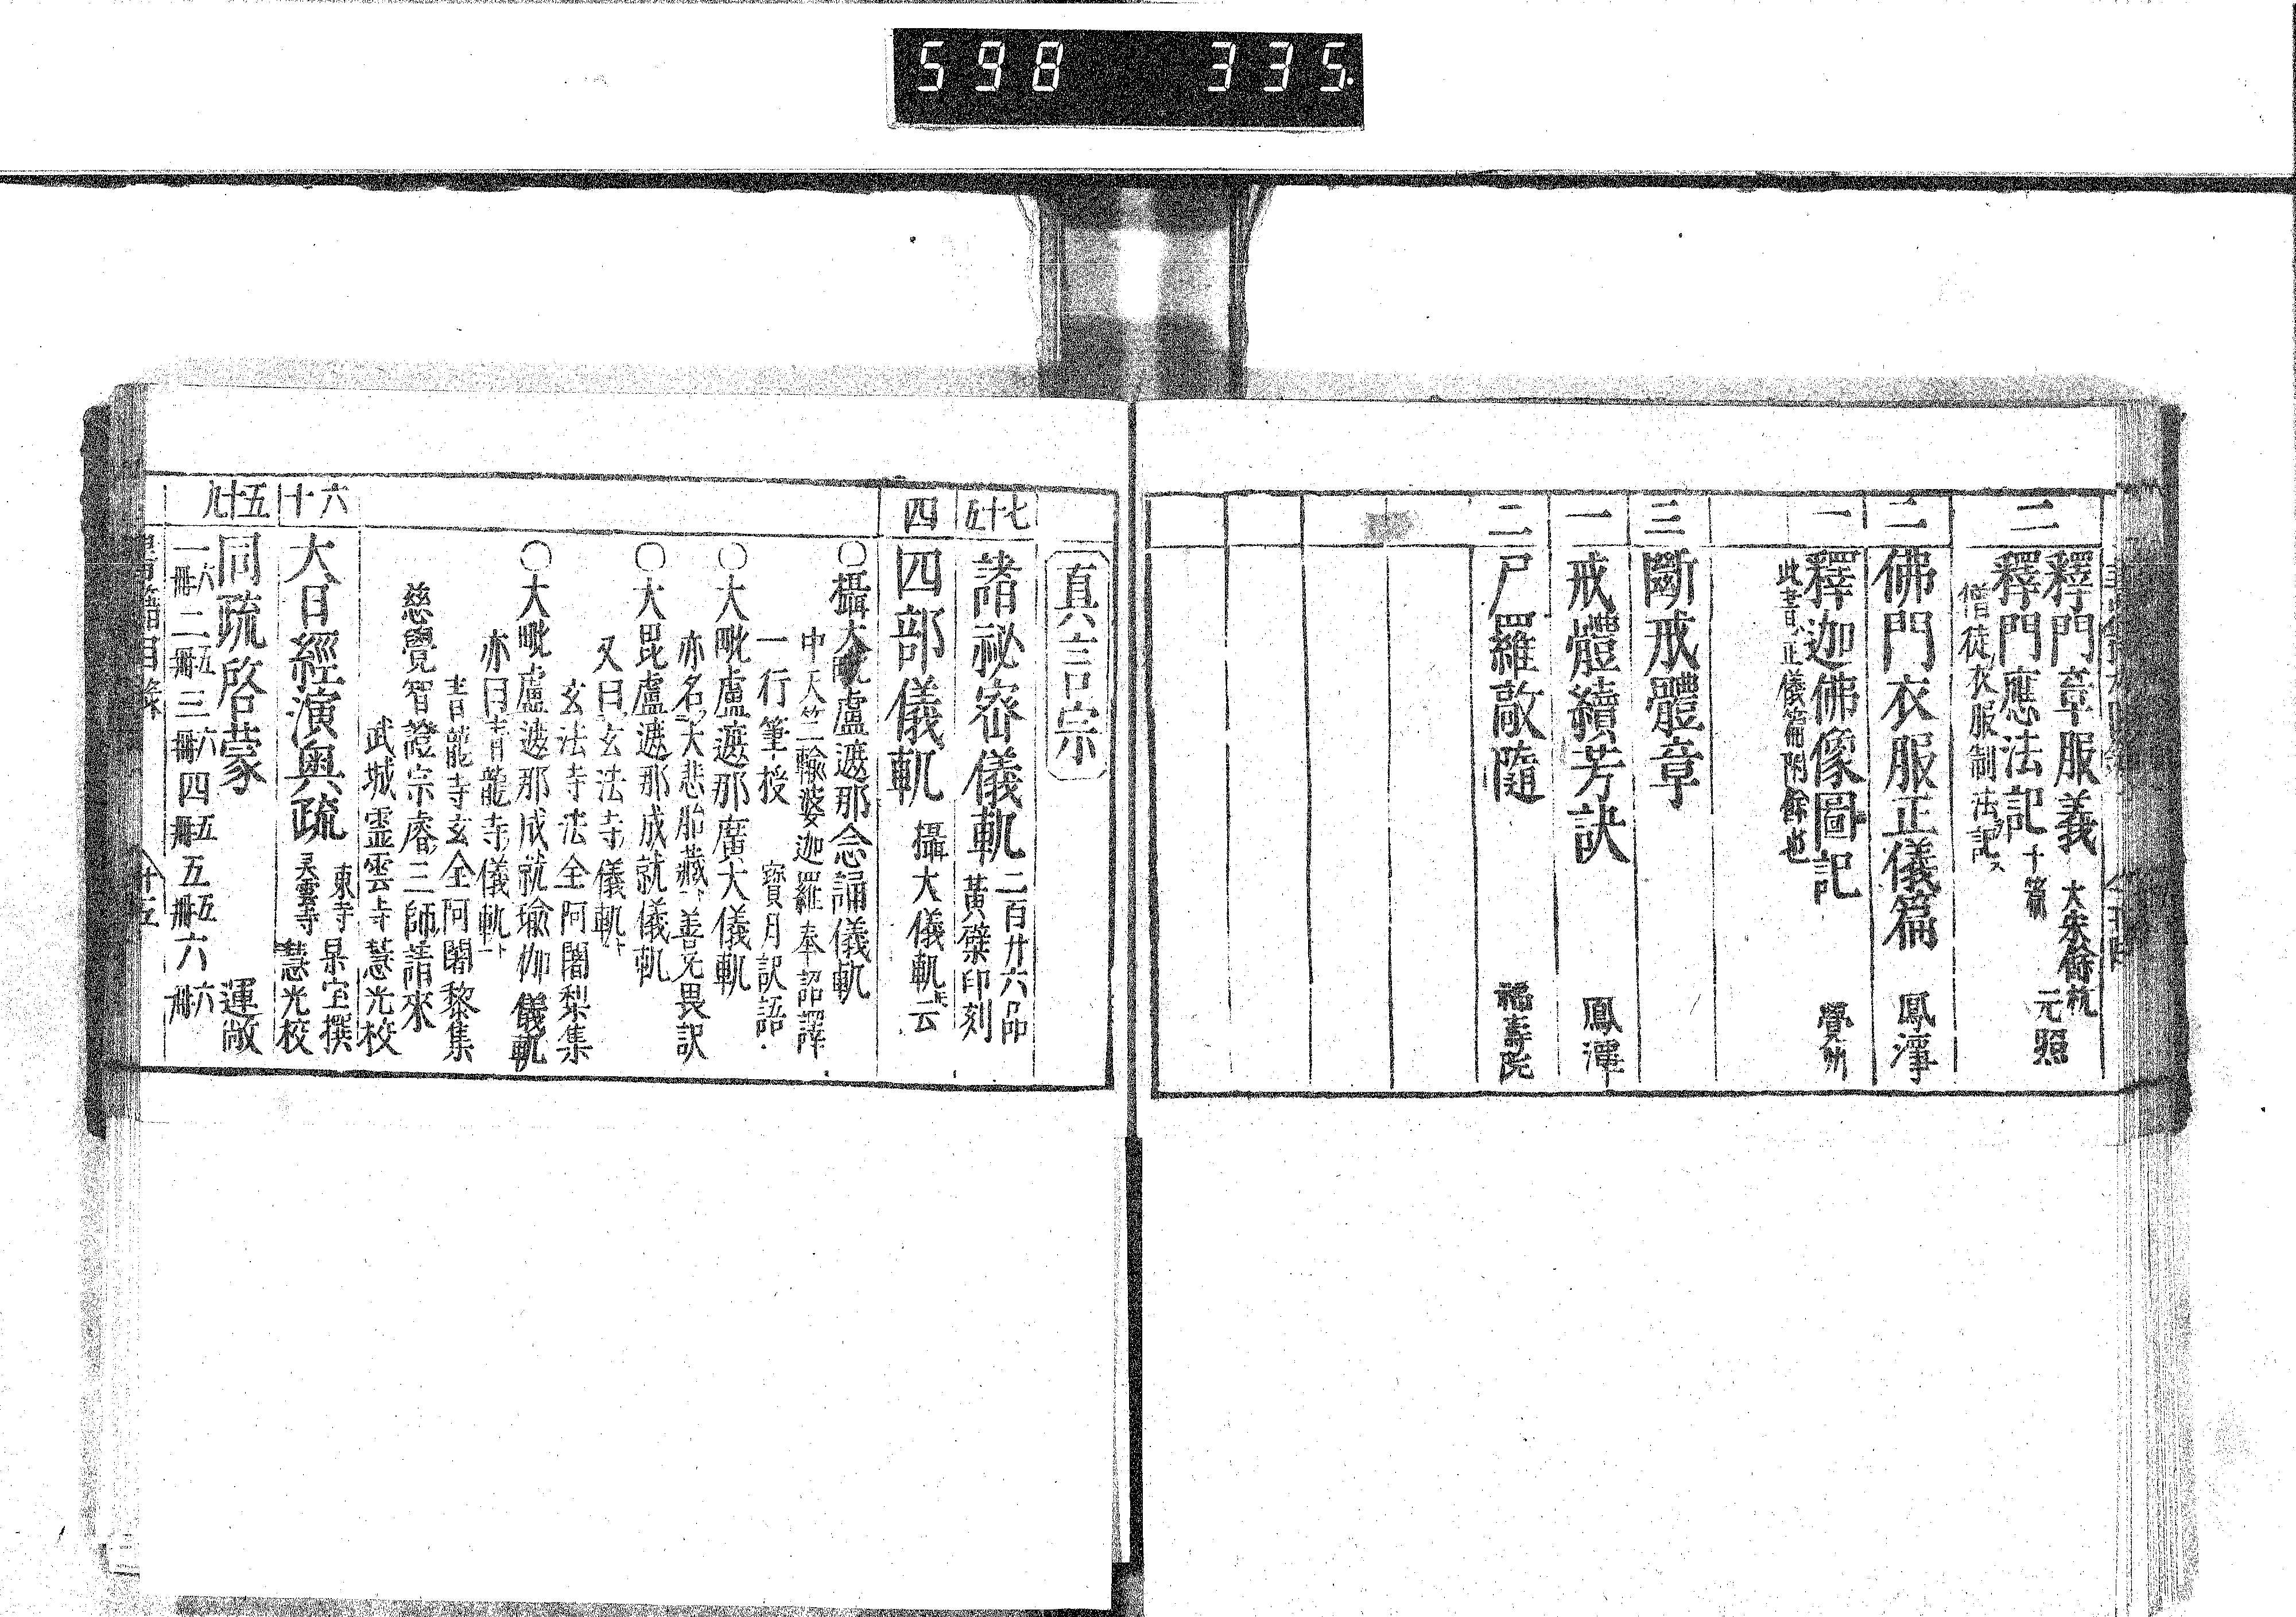 598 335.
二
釋門章服義 大宋餘杭 元照
釋門應法記 十篇
僧徒衣服制法記ス
二 佛門衣服正儀篇 鳳潭
一 釋迦佛像圖記 覺州
此書ハ正儀篇附餘也
三 斷戒體章
一 戒體續芳訣 鳳潭
二 尸羅敲隨 福壽院
真言宗
七十五 諸祕密儀軌 二百廿六品 黃檗印刻
四 四部儀軌 攝大儀軌 云
○攝大毗盧遮那念誦儀軌
中天竺輸婆迦羅奉詔譯
一行筆授 寶月訳語
○大毗盧遮那廣大儀軌
亦名大悲胎藏 善无畏訳
○大毘盧遮那成就儀軌
又曰玄法寺儀軌ト
玄法寺法全阿闍梨集
○大毗盧遮那成就瑜伽儀軌
亦曰青龍寺儀軌ト
青龍寺玄全阿闍黎集
慈覺智證宗睿三師請來
武城霊雲寺慧光校
六十 大日經演奥疏 東寺 杲宝撰
灵雲寺 慧光校
五十九 同疏啓蒙 運敞
一冊六 二冊五 三冊六 四冊五 五冊五 六冊六
書籍目録 廿五